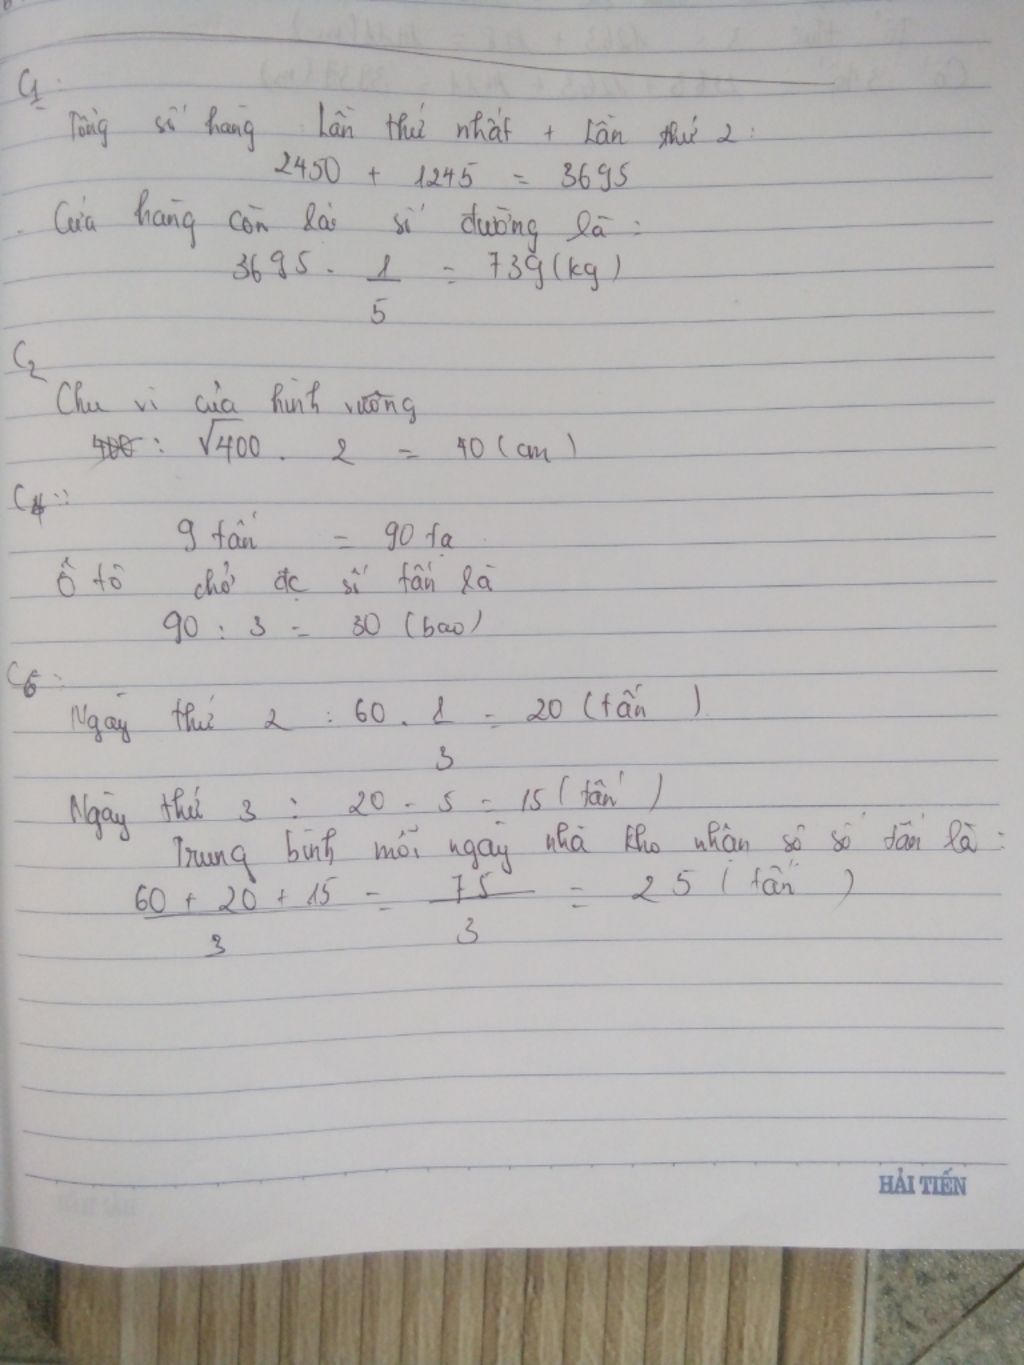 C1:
Tổng số hàng lần thứ nhất + lần thứ 2:
2450 + 1245 = 3695
Cửa hàng còn lại số đường là:
3695 . 1/5 = 739 (kg)
C2
Chu vi của hình vuông
400 : √400 . 2 = 40 (cm)
C4:
9 tấn = 90 tạ
Ô tô chở đc số tấn là
90 : 3 = 30 (bao)
C5:
Ngày thứ 2 : 60 . 1/3 = 20 (tấn)
Ngày thứ 3 : 20 - 5 = 15 (tấn)
Trung bình mỗi ngày nhà kho nhận số số tấn là:
60 + 20 + 15 / 3 = 75 / 3 = 25 (tấn)
HẢI TIẾN